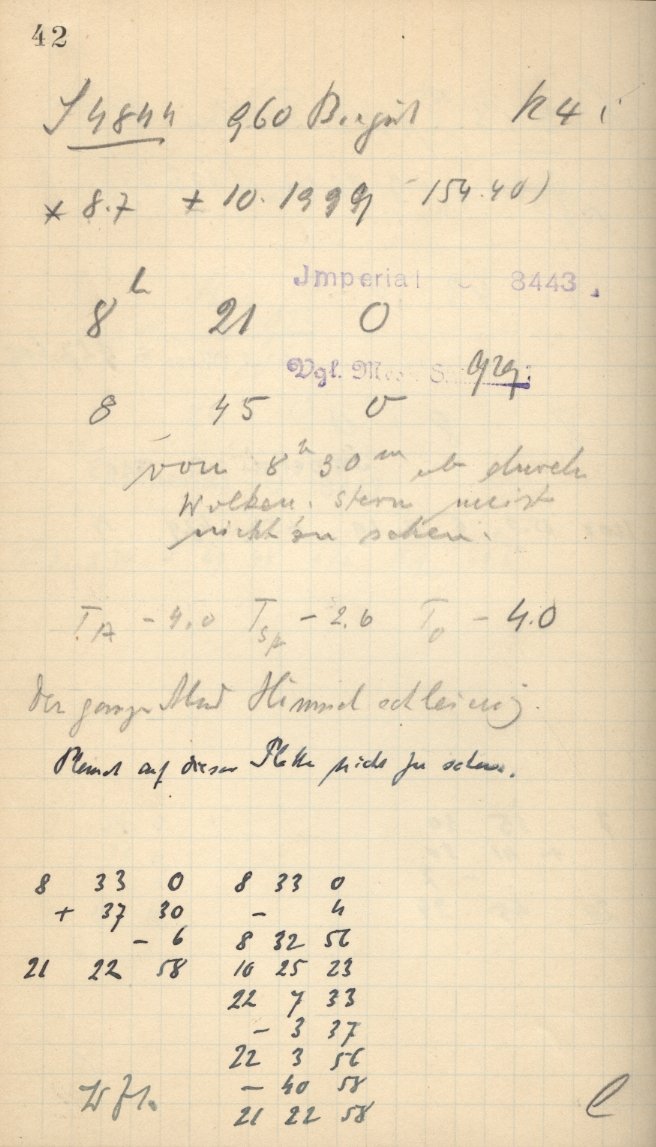 42
S 4844 960 Birgit K 4
* 8.7 + 10. 1999 154.40)
Imperial 8443.
8 h 21 0
Vgl. 929.
8 45 0
vom 8 h 30 m ab durch
Wolken. Stern meist
nicht zu sehen.
T A - 4.0 T Sp - 2.6 T O - 4.0
Der ganze Abend Himmel schleierig.
Planet auf dieser Platte nicht zu sehen.
8 33 0 8 33 0
+ 37 30 - 4
- 6 8 32 56
21 22 58 10 25 23
22 7 33
- 3 37
22 3 56
- 40 58
21 22 58